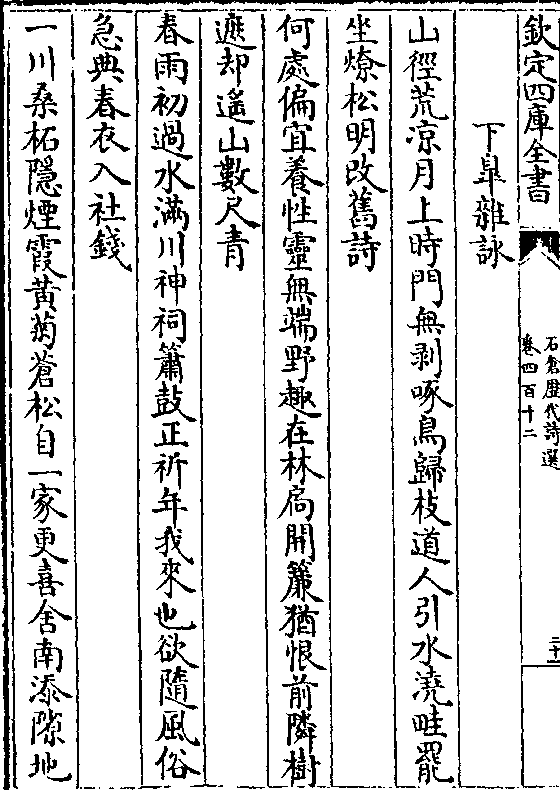 欽定四庫全書
石倉歴代詩選
卷四百十二
二十一
下皐雜詠
山徑荒凉月上時門無剥啄鳥歸枝道人引水澆畦罷
坐燎松明改舊詩
何處偏宜養性靈無端野趣在林扃開簾猶恨前隣樹
遮却遙山數尺青
春雨初過水滿川神祠簫鼓正祈年我來也欲隨風俗
急典春衣入社錢
一川桑柘隱煙霞黄菊蒼松自一家更喜舍南添隙地